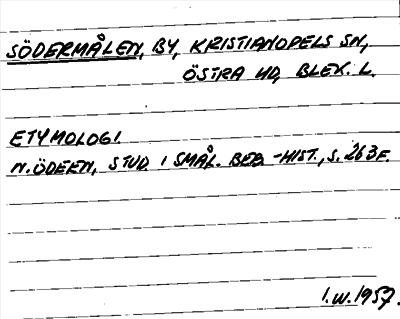 SÖDERMÅLEN, BY, KRISTIANOPELS SN,
ÖSTRA HD, BLEK. L.
ETYMOLOGI.
N. ÖDEEN, STUD. I SMÅL. BEB.-HIST., S. 263 F.
I.W. 1957.